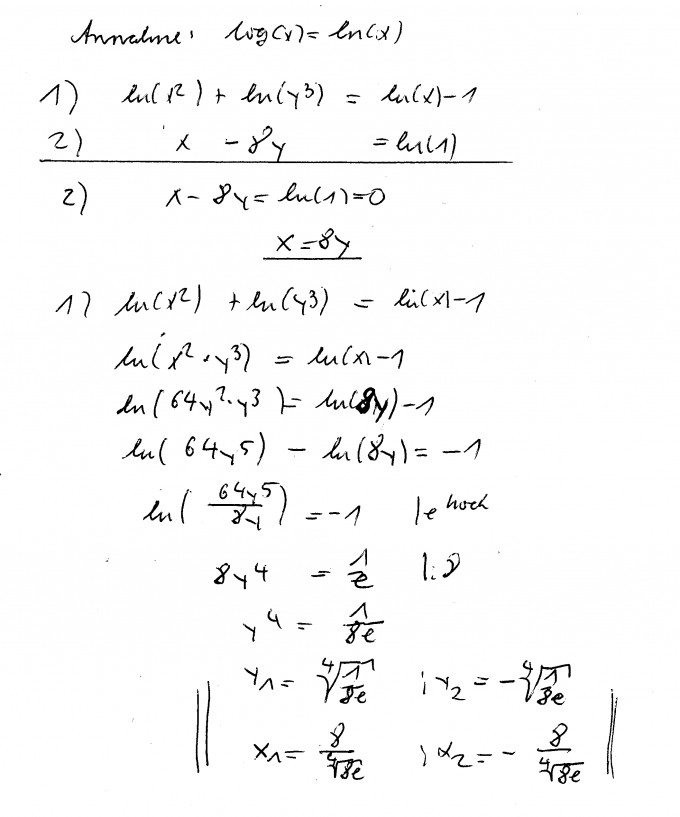 Annahme: log(x) = ln(x)
1) ln(x²) + ln(y³) = ln(x) - 1
2) x - 8y = ln(1)
2) x - 8y = ln(1) = 0
x = 8y
1) ln(x²) + ln(y³) = ln(x) - 1
ln(x² · y³) = ln(x) - 1
ln(64y² · y³) = ln(8y) - 1
ln(64y⁵) - ln(8y) = -1
ln(64y⁵/8y) = -1 |e hoch
8y⁴ = 1/e |:8
y⁴ = 1/8e
y₁ = ⁴√(1/8e) ; y₂ = -⁴√(1/8e)
x₁ = 8/⁴√8e ; x₂ = - 8/⁴√8e